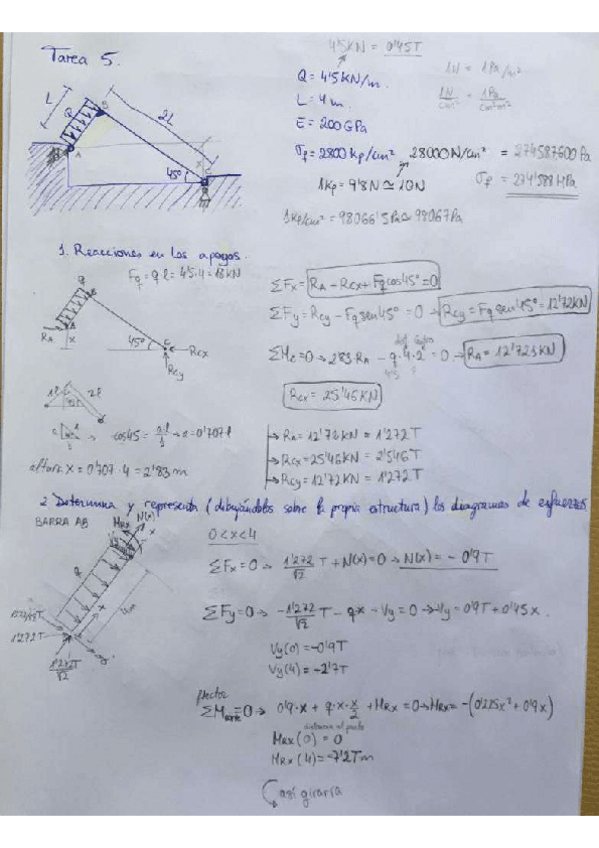 Tarea 5.
4'5KN = 0'45T
Q = 4'5 KN/m.
L = 4 m.
E = 200 GPa
1N = 1Pa/m²
σp = 2800 Kp/cm² 28000 N/cm² = 274587600 Pa
1Kp = 9'8N ≃ 10N
σp = 274'588 MPa
1Kp/cm² = 98066'5 Pa ≃ 98067 Pa
L
Q
B
2L
A
45°
C
1. Reacciones en los apoyos.
Fq = q·l = 4'5·4 = 18KN
ΣFx = RA - RCx + Fq cos45° = 0
ΣFy = RCy - Fq sen45° = 0 → RCy = Fq sen45° = 12'72KN
ΣMc = 0 → 2'83 RA - q·4·2 = 0 → RA = 12'723KN
4'5
RCx = 25'46KN
RA
x
45°
RCx
RCy
2l
cos45 = → a = 0'707 l
altura x = 0'707·4 = 2'83 m
RA = 12'72KN = 1'272T
RCx = 25'46KN = 2'546T
RCy = 12'72KN = 1'272T
2 Determina y representa (dibujándolos sobre la propia estructura) los diagramas de esfuerzos
BARRA AB
MRx
N(x)
q
4m
1'272T
1'272T/√2
0 < x < 4
ΣFx = 0 → 1'272/√2 T + N(x) = 0 → N(x) = - 0'9T
ΣFy = 0 → -1'272/√2 T - qx - Vy = 0 → Vy = 0'9T + 0'45x.
Vy(0) = -0'9T
Vy(4) = -2'7T
ΣM = 0 → 0'9·x + q·x·x/2 + MRx = 0 → MRx = -(0'225x² + 0'9x)
distancia al punto
MRx(0) = 0
MRx(4) = -7'2Tm
así giraría